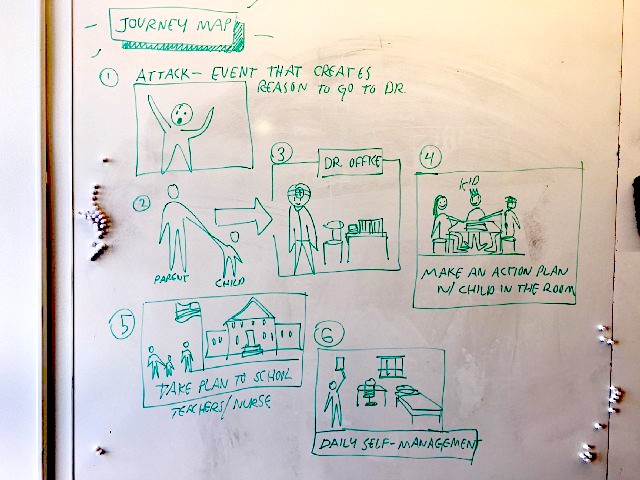 JOURNEY MAP
① ATTACK - EVENT THAT CREATES
REASON TO GO TO DR.
②
PARENT CHILD
③
DR OFFICE
④
KID
MAKE AN ACTION PLAN
W/ CHILD IN THE ROOM
⑤
TAKE PLAN TO SCHOOL
TEACHERS/NURSE
⑥
DAILY SELF-MANAGEMENT